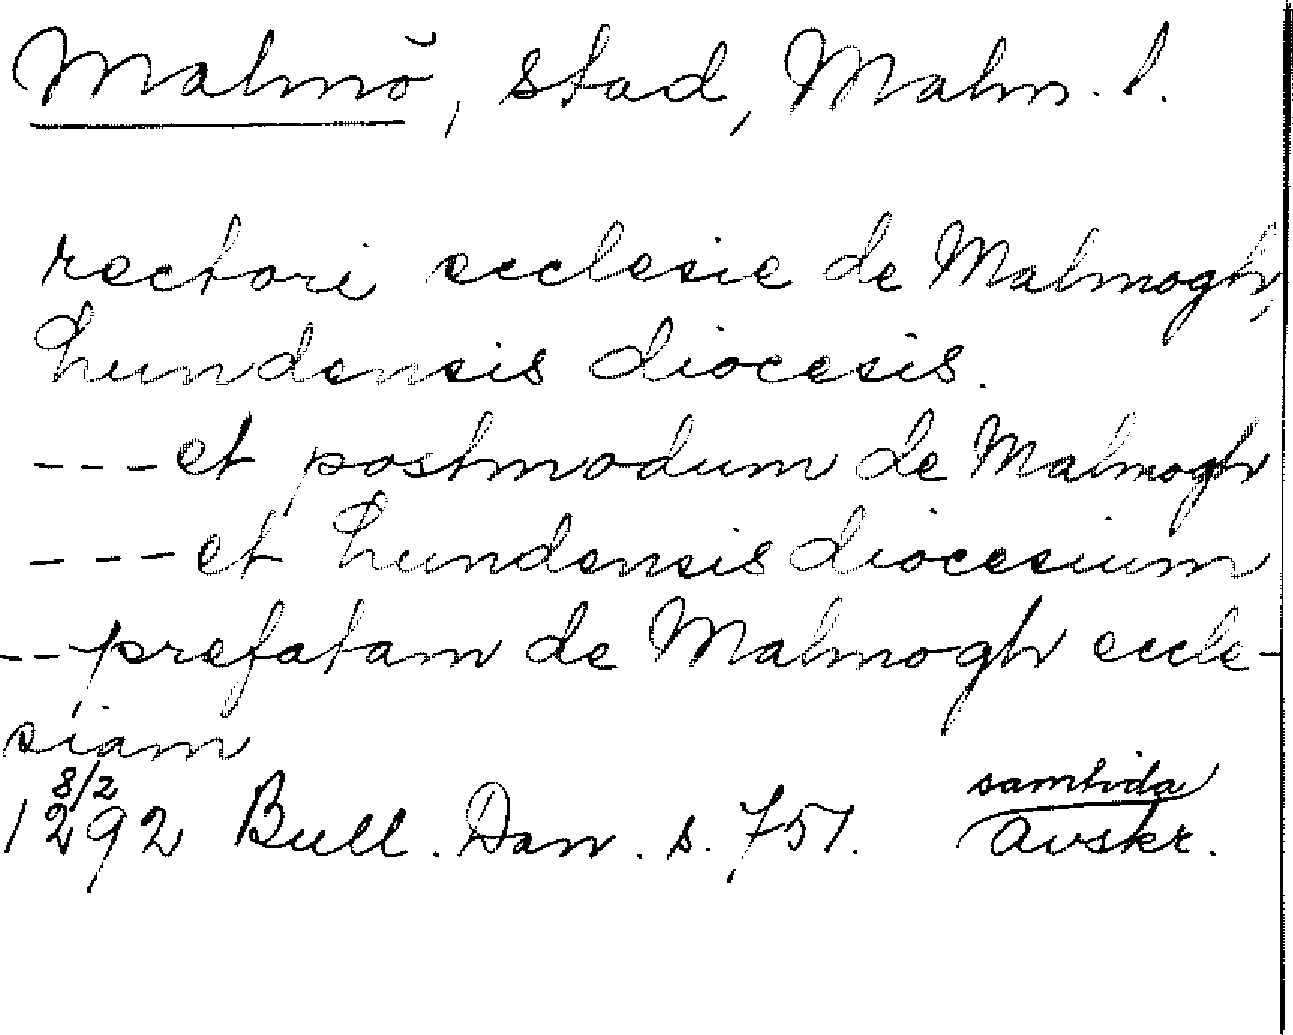 Malmö, stad, Malm. l.
rectori ecclesie de Malmogh,
Lundensis diocesis.
--- et postmodum de Malmogh
--- et Lundensis diocesium
-- prefatam de Malmogh eccle-
siam
8/2 samtida
1292 Bull. Dan. s. 751. avskr.